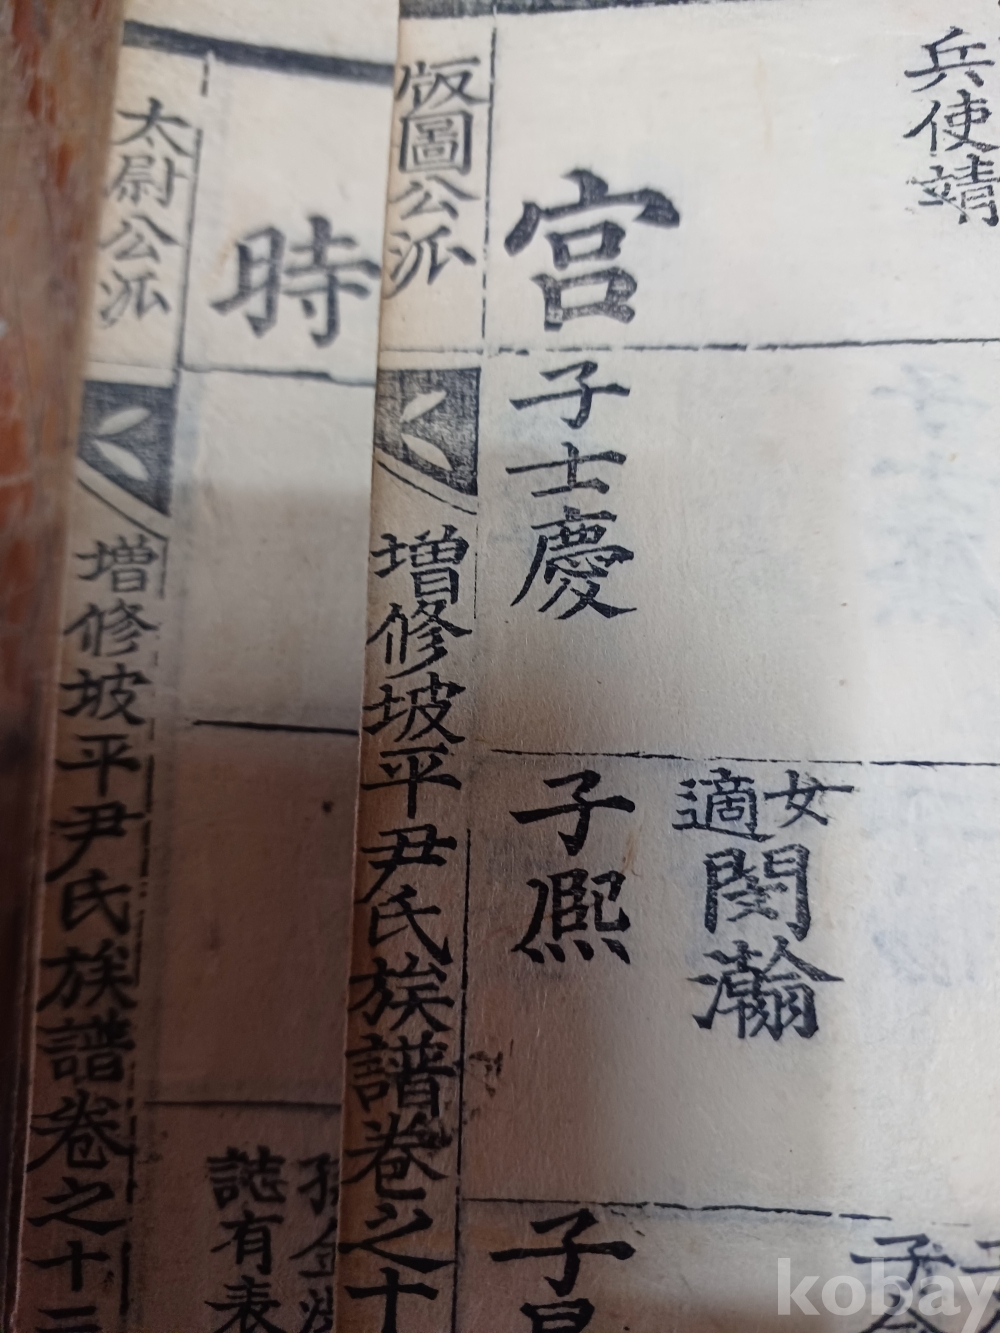 兵使靖
宮
子士慶
女
適閔瀚
子熙
子
版圖公派
增修坡平尹氏族譜卷之十
時
誌有表
太尉公派
增修坡平尹氏族譜卷之十二
kobay